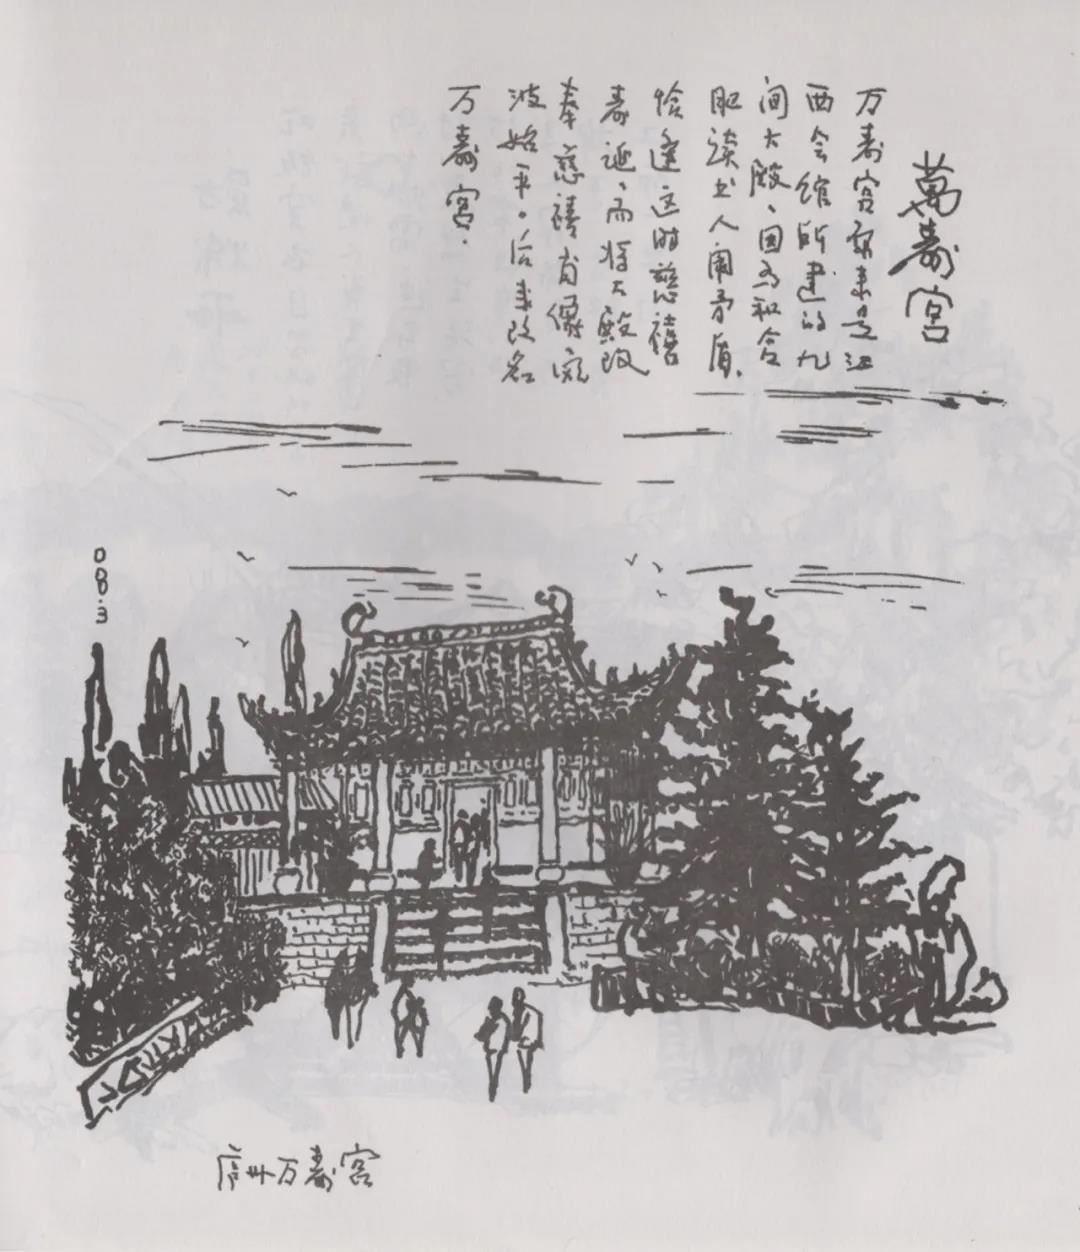 萬寿宫
万寿宫原来是江
西会馆所建的九
间大殿、因为和合
肥读书人闹矛盾、
恰逢这时慈禧
寿诞、而将大殿改
奉慈禧肖像风
波始平。后来改名
万寿宫.
08.3
庐州万寿宫